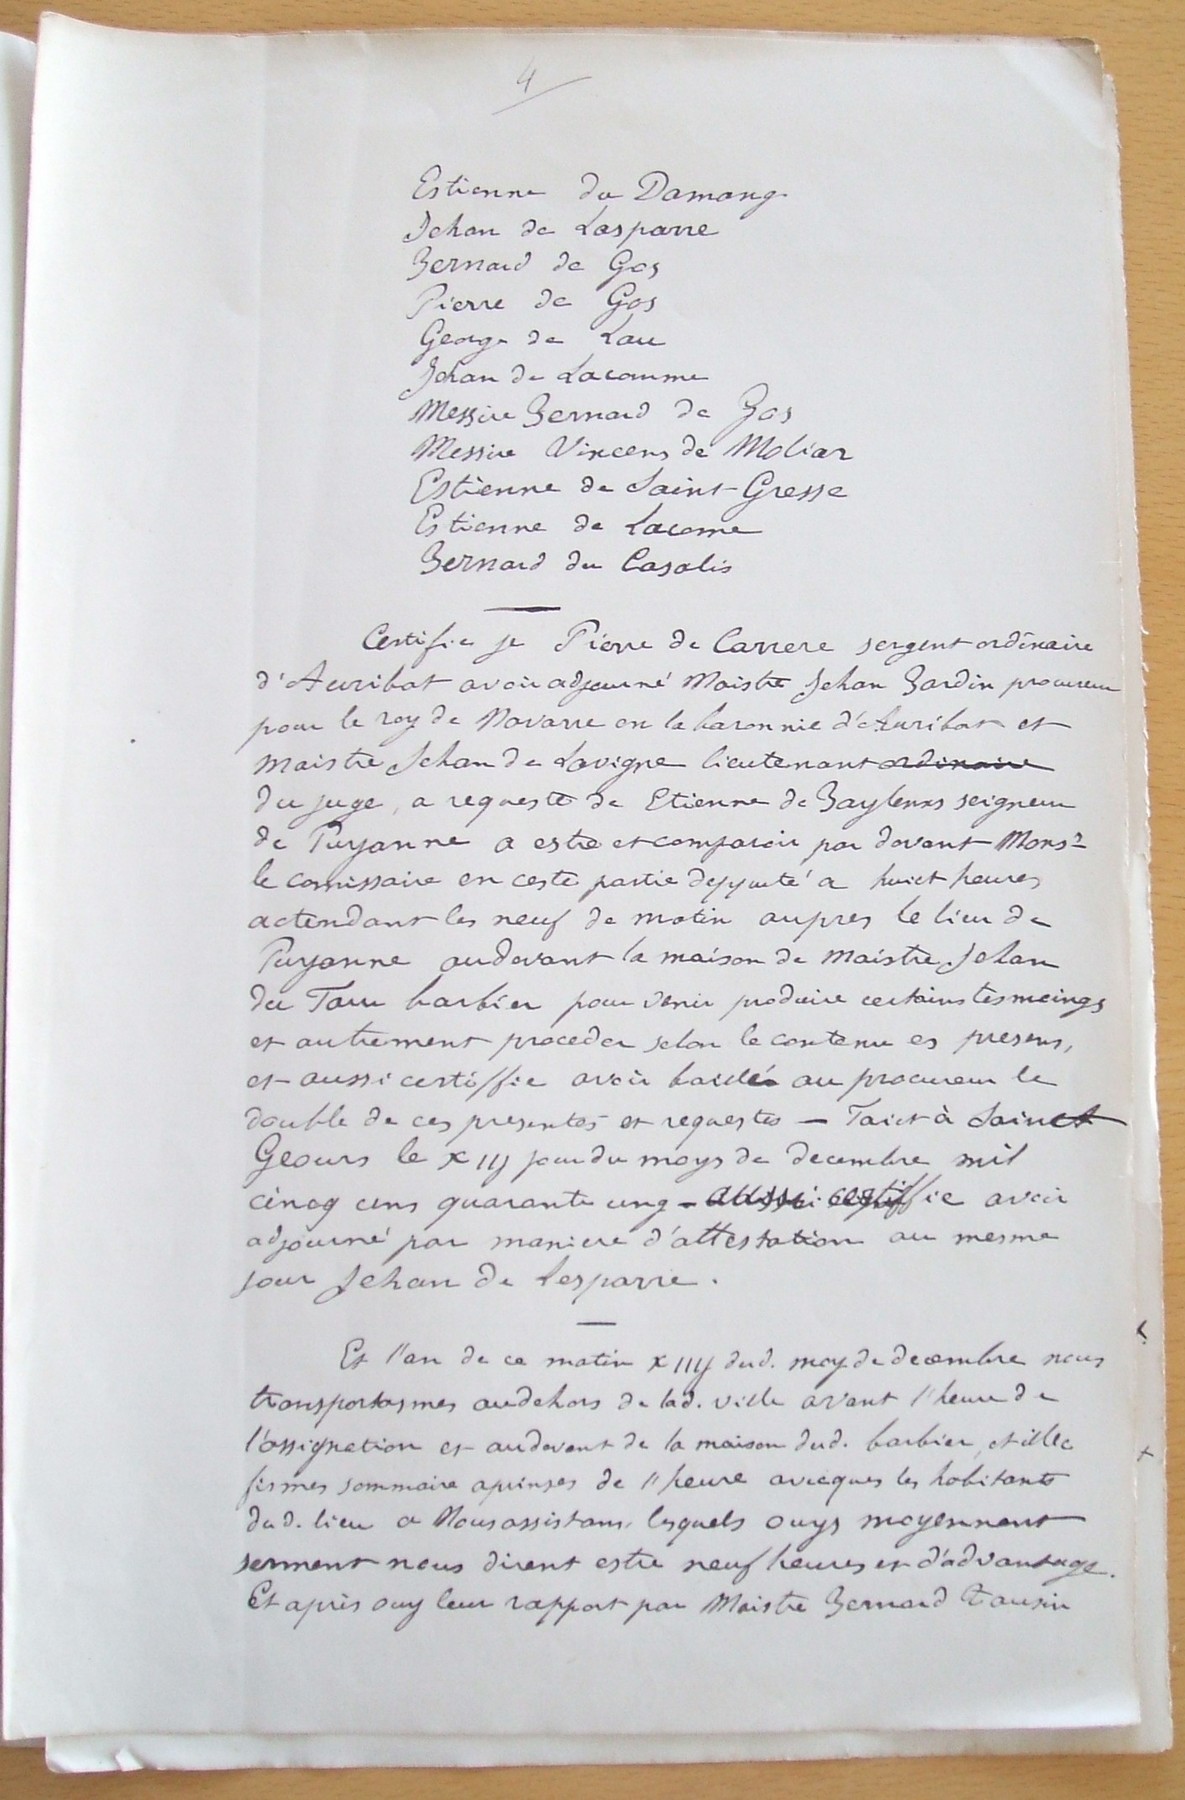 4
Estienne du Damang
Jehan de Lasparre
Bernard de Gos
Pierre de Gos
George de Lau
Jehan de Lacomme
Messire Bernard de Bos
Messire Vincens de Moliar
Estienne de Saint-Gresse
Estienne de Lacome
Bernard du Casalis
Certifie je Pierre de Carrere sergent ordinaire
d'Auribat avoir adjourné Maistre Jehan Bardin procureur
pour le roy de Navarre en la baronnie d'Auribat et
Maistre Jehan de Lavigne lieutenant ordinaire
du juge, a requeste de Etienne de Baylenxs seigneur
de Puyanne a estre et comparoir par devant Monsr
le comissaire en ceste partie depputé a huict heures
actendant les neuf de matin aupres le lieu de
Puyanne audevant la maison de Maistre Jehan
du Tauu barbier pour venir produire certains tesmoings
et autrement proceder selon le contenu es presens,
et aussi certiffie avoir baidé au procureur le
double de ces presentes et requestes — Faict à Sainct
Geours le xiij jour du moys de decembre mil
cincq cens quarante ung - aussi certiffie avoir
adjourné par maniere d'attestation au mesme
jour Jehan de Lesparre.
Et l'an de ce matin xiiij dud. moy de decembre nous
transportasmes audehors de lad. ville avant l'heure de
l'assignation et audevant de la maison dud. barbier, et illec
fismes sommaire apinses de l'heure avecques les habitants
dud. lieu a Nous assistans, lesquels ouys moyennant
serment nous dirent estre neuf heures et d'advantage.
Et après ouy leur rapport par Maistre Bernard Tausin